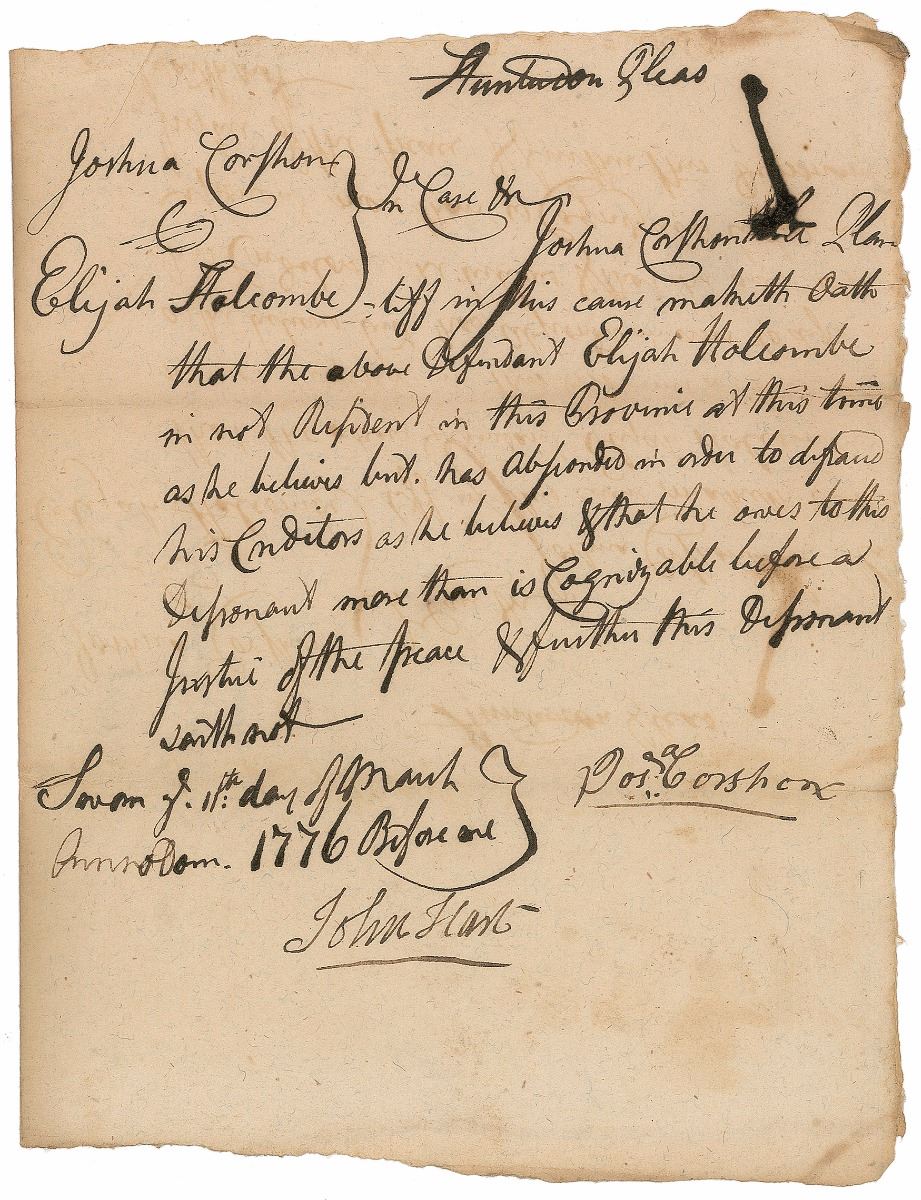 Huntudon Pleas
Joshua Corshon } In Case &c
Joshua Corshon the Plain
Elijah Holcombe } -tiff in this cause maketh Oath
that the above Defendant Elijah Holcombe
in not Resident in this Provinie at this time
as he believes but. has Absconded in order to defraud
his Creditors as he believes & that he owes to this
Deponant more than is Cognizable before a
Justice of the peace & further this Deponant
saith not
Sworn ye. 11th. day of March
Anno Dom. 1776 Before me }
Josa. Corshon
John Hart